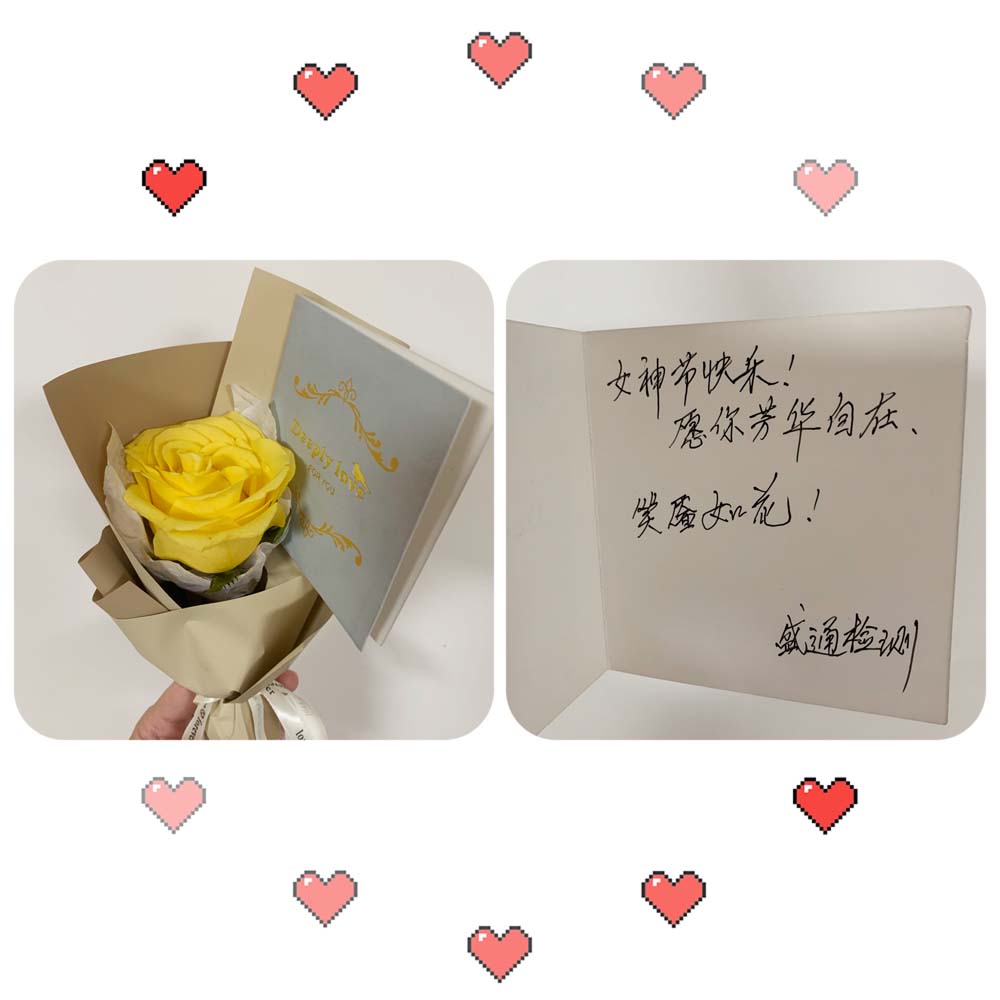 Deeply love
FOR YOU
女神节快乐！
愿你芳华自在、
笑靥如花！
盛通检测